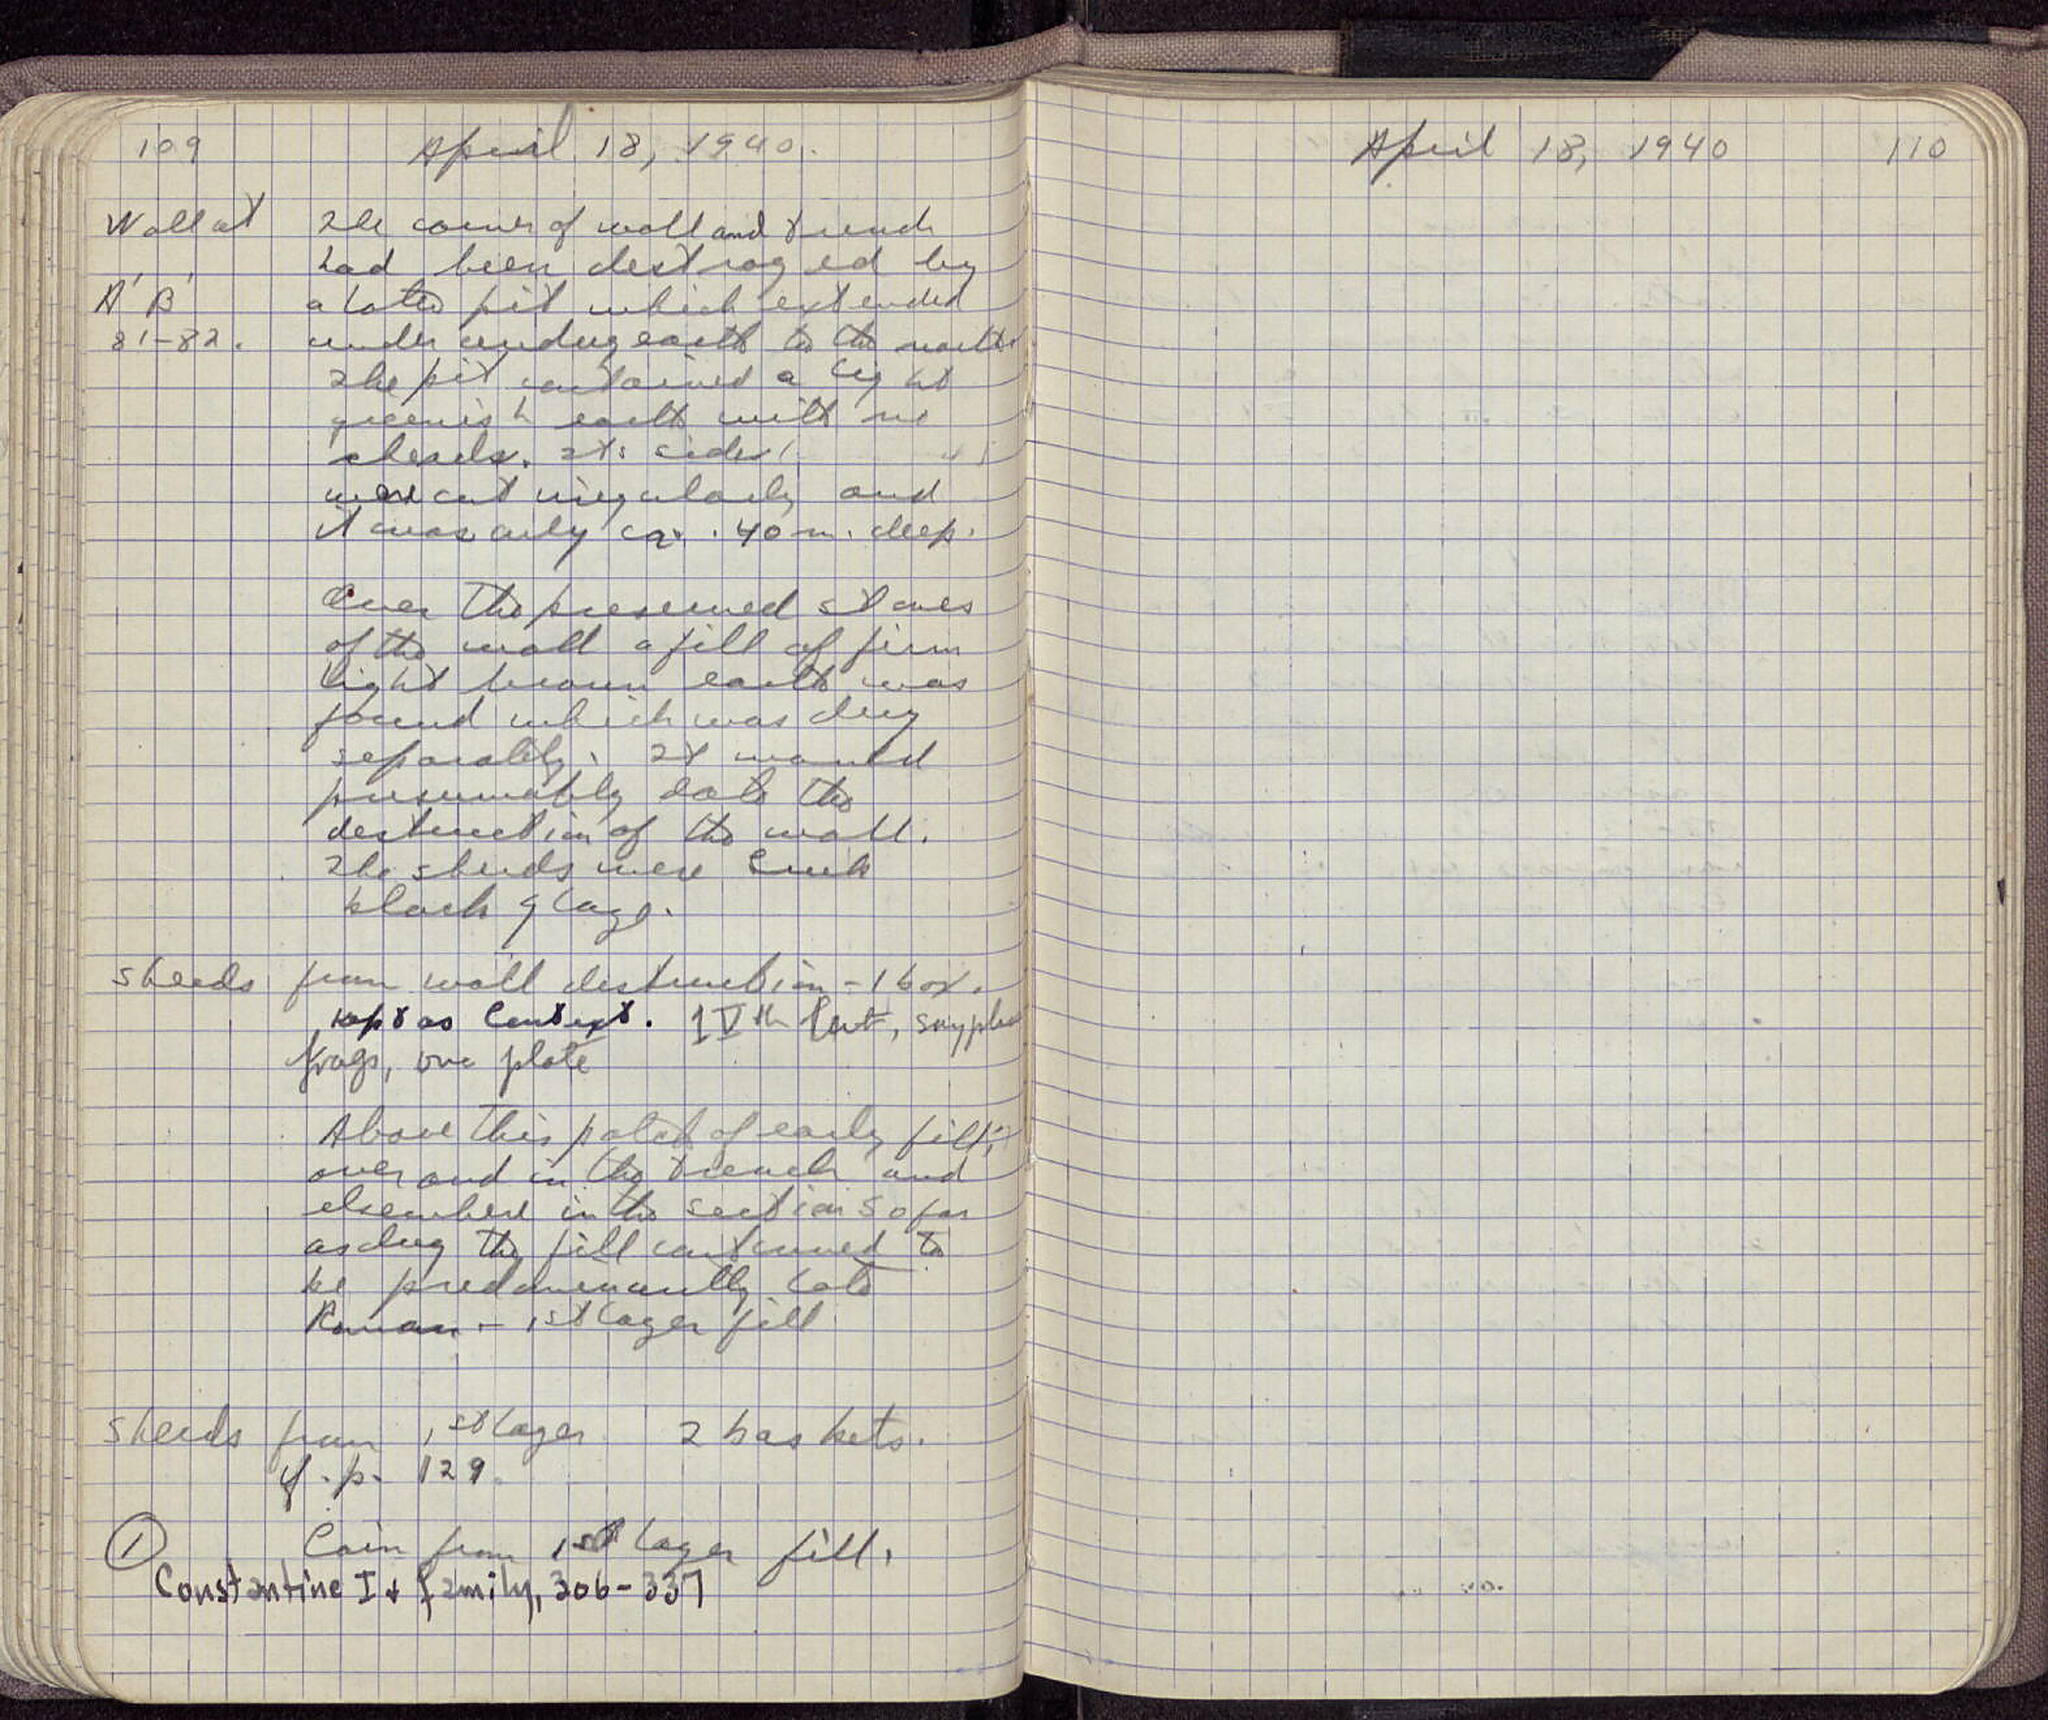 109 April 18, 1940.
Wall at The corner of wall and trench
had been destroyed by
A' B' a later pit which extended
81-82. under undug earth to the north.
The pit contained a light
greenish earth with no
sherds. Its sides
were cut irregularly and
it was only ca. .40 m. deep.
Over the preserved stones
of the wall a fill of firm
light brown earth was
found which was dug
separately. It would
presumably date the
destruction of the wall.
The sherds were Greek
black glaze.
Sherds from wall destruction - 1 box.
Kept as Context. IVth Cent, skyphos
frags, one plate
Above this patch of early fill,
over and in the trench and
elsewhere in the section so far
as dug the fill continued to
be predominantly late
Roman - 1st layer fill
Sherds from 1st layer 2 baskets.
cf. p. 129.
1 Coin from 1st layer fill.
Constantine I + family, 306-337
April 18, 1940 110